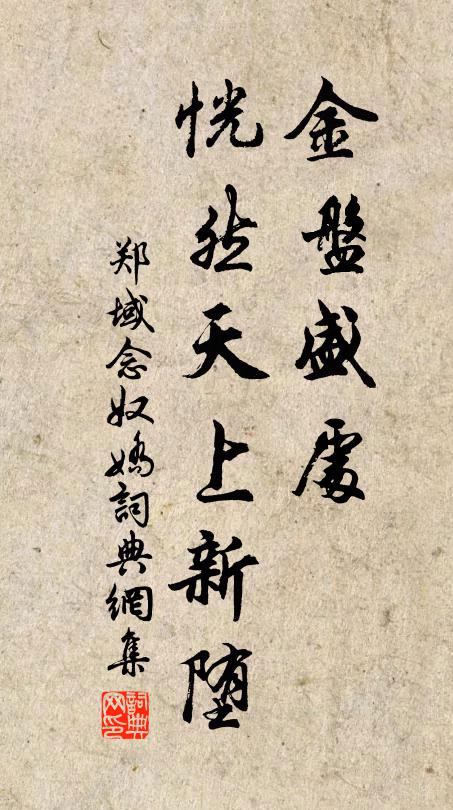 金盤盛處
恍然天上新堕
郑域念奴嬌詞典網集
詞典
网印